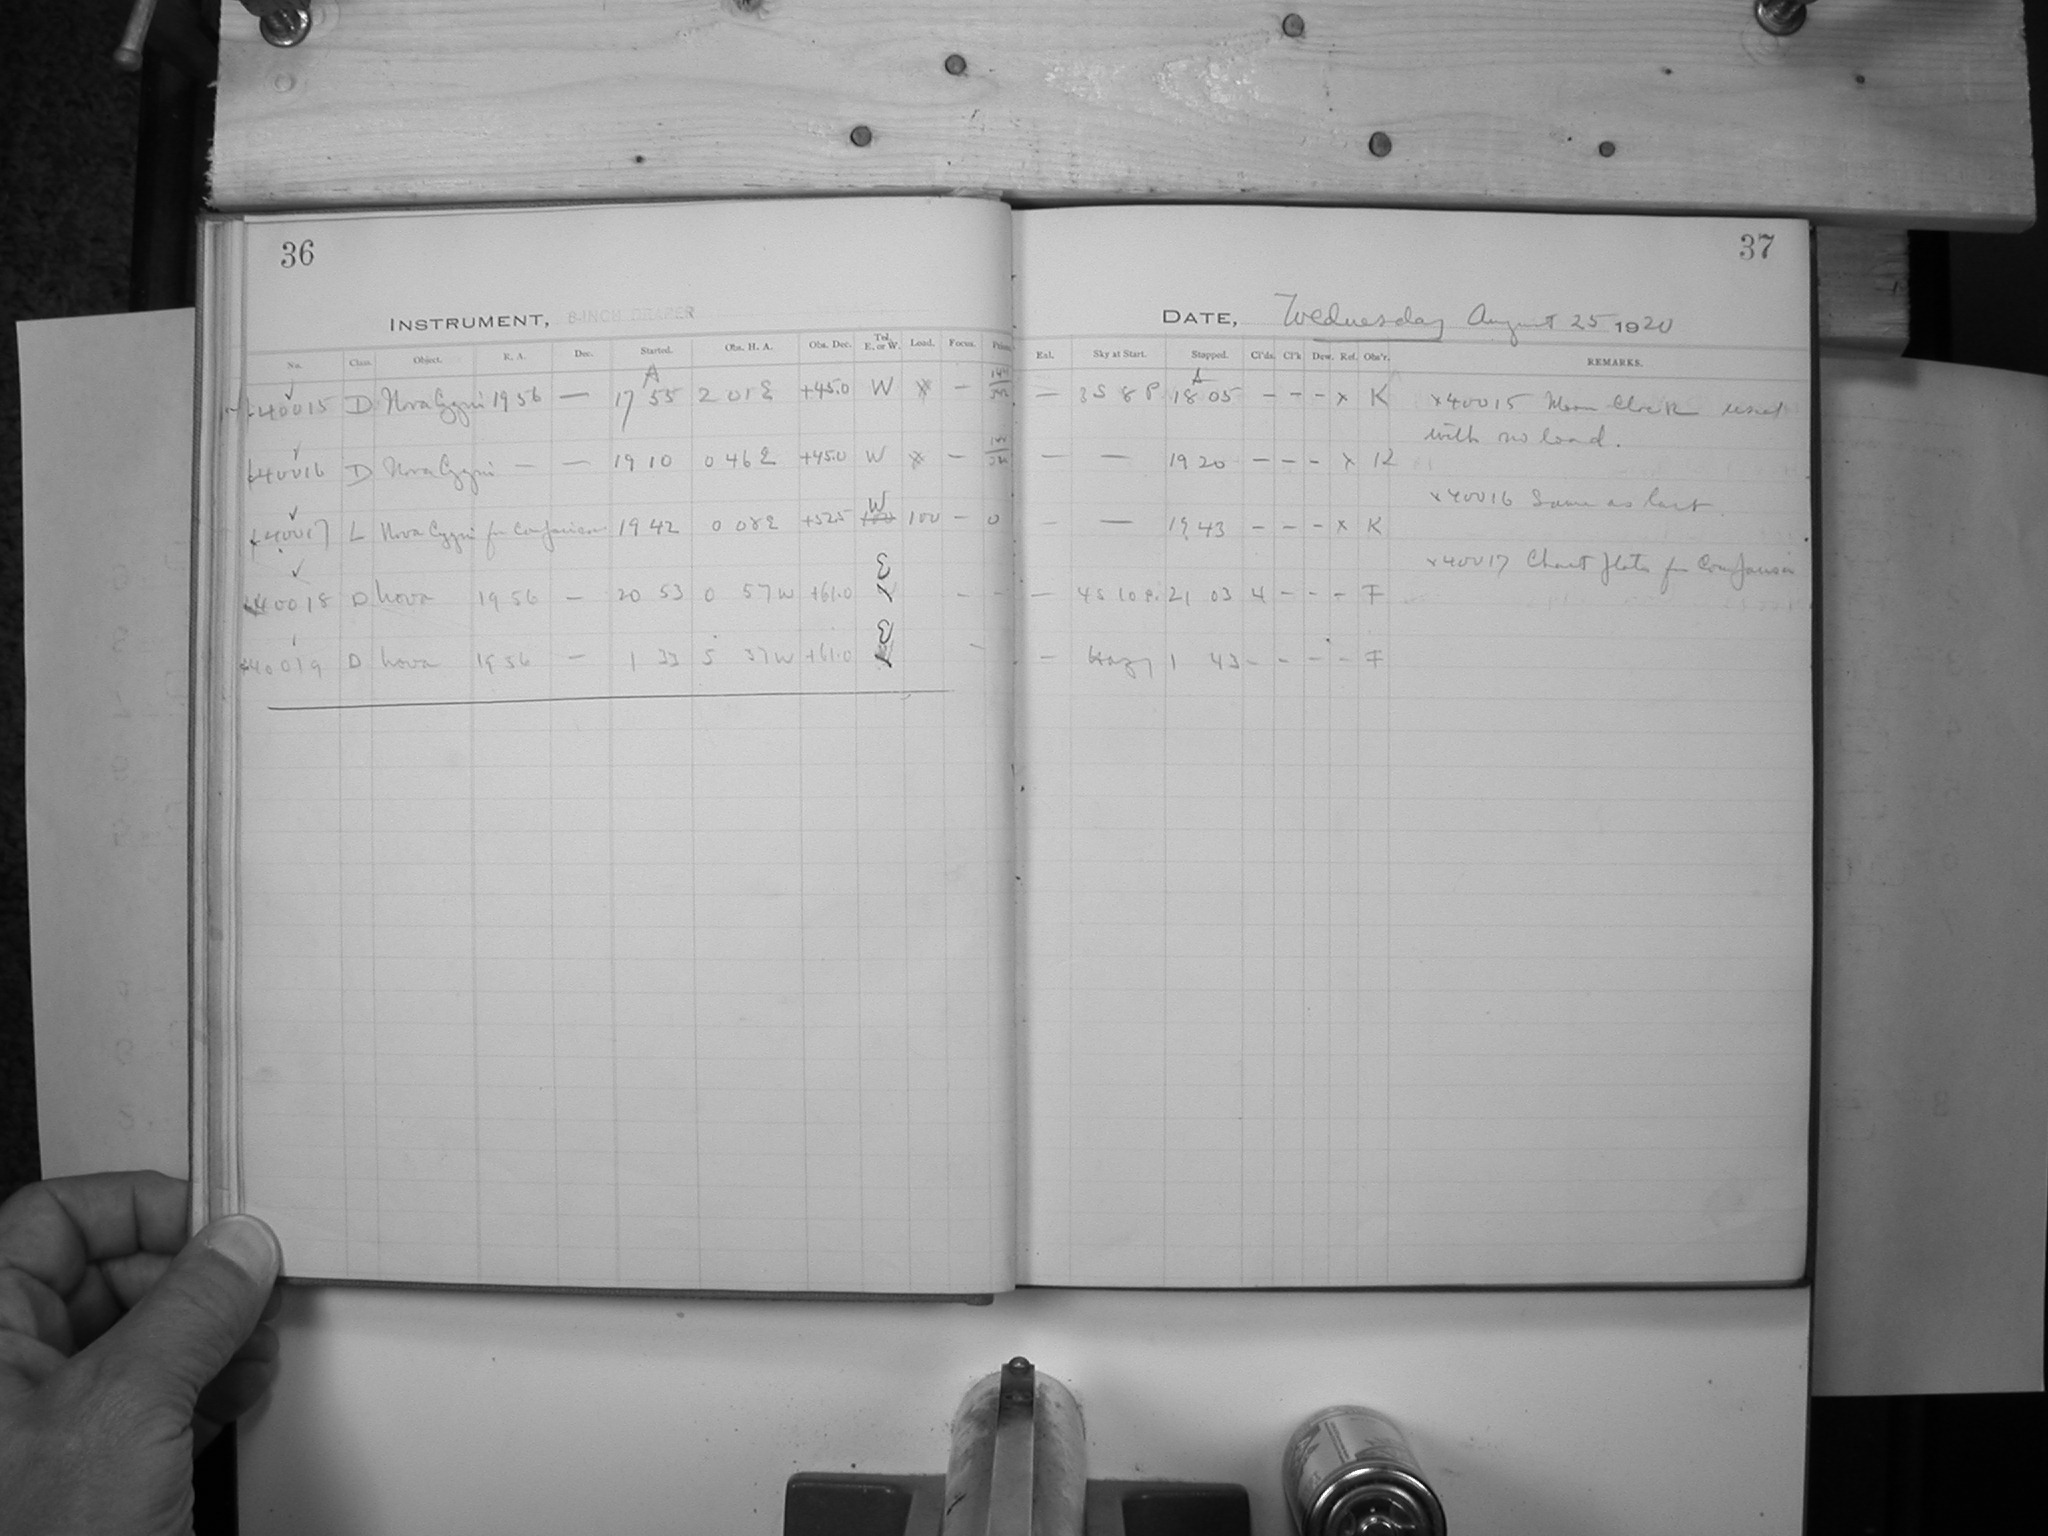 36
37
INSTRUMENT, 8-INCH DRAPER
DATE, Wednesday August 25 1920
No. Class. Object. R. A. Dec. Started. Obs. H. A. Obs. Dec. Tel. E. or W. Load. Focus. Prism Exl. Sky at Start. Stopped. Cl'ds. Cl'k Dew. Ref. Obs'r. REMARKS.
A A
40015 D Nova Cygni 19 56 — 17 55 2 01 E +45.0 W x – — 3 S 8 P 18 05 – – – x K x40015 Moon Clock used
with no load.
40016 D Nova Cygni — — 19 10 0 46 E +45.0 W x – — — 19 20 – – – x K
x40016 Same as last.
40017 L Nova Cygni for Comparison 19 42 0 08 E +52.5 W 100 – 0 – — 19 43 – – – x K
x40017 Chart plate for Comparison
40018 D Nova 19 56 – 20 53 0 57 W +61.0 E – – — 4 S 10 P. 21 03 4 – – – F
40019 D Nova 19 56 – 1 33 5 37 W +61.0 E – – Hazy 1 43 – – – – F